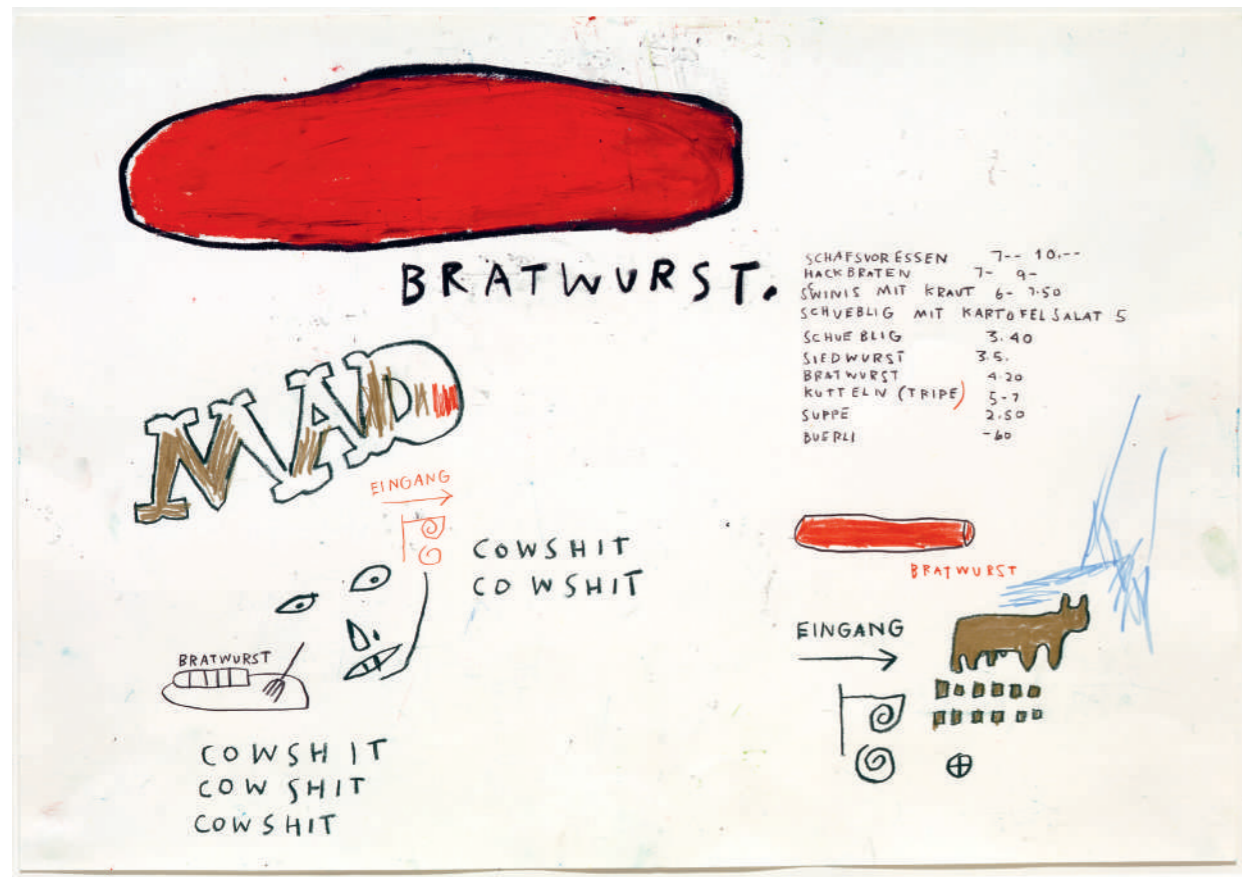 BRATWURST.
SCHAFSVORESSEN 7-- 10.--
HACKBRATEN 7- 9-
SWINIS MIT KRAUT 6- 7.50
SCHUEBLIG MIT KARTOFELSALAT 5
SCHUEBLIG 3.40
SIEDWURST 3.5.
BRATWURST 4.20
KUTTELN (TRIPE) 5-7
SUPPE 2.50
BUERLI -60
MAD
EINGANG
COWSHIT
COWSHIT
BRATWURST
COWSHIT
COWSHIT
COWSHIT
BRATWURST
EINGANG